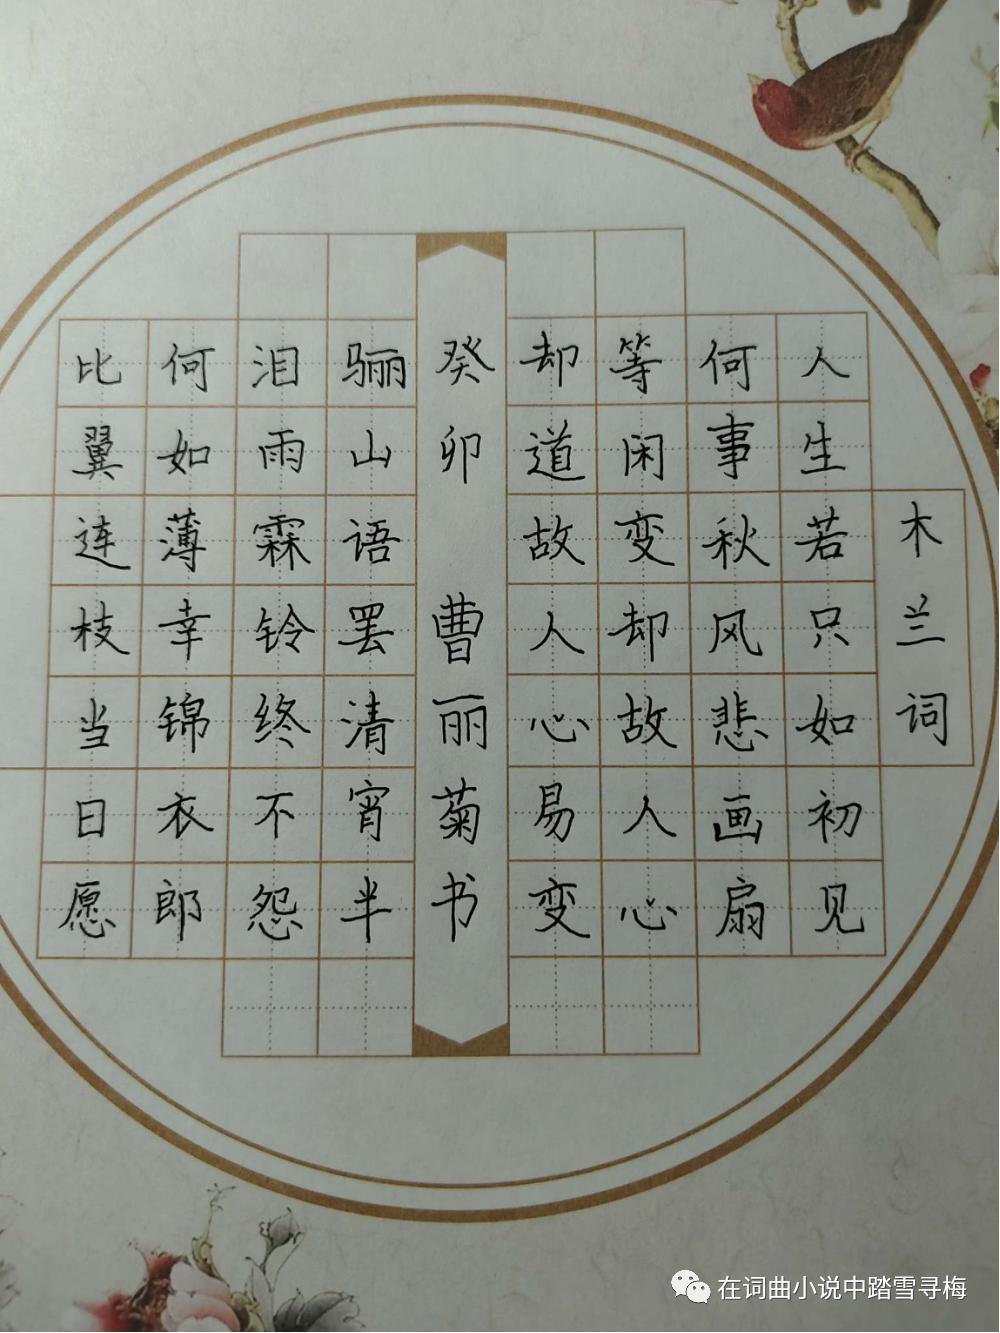 木兰词
人生若只如初见
何事秋风悲画扇
等闲变却故人心
却道故人心易变
癸卯 曹丽菊书
骊山语罢清宵半
泪雨霖铃终不怨
何如薄幸锦衣郎
比翼连枝当日愿
在词曲小说中踏雪寻梅